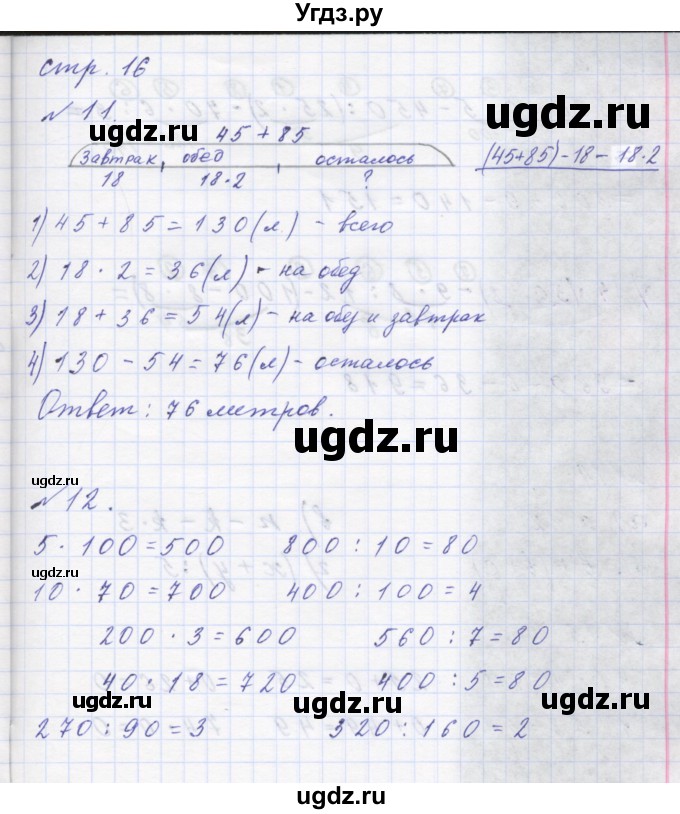 Угдз.ру
стр. 16
№ 11.
45 + 85
завтрак, обед, осталось
18 18·2 ?
(45+85)-18-18·2
1) 45 + 85 = 130 (л) - всего
2) 18 · 2 = 36 (л) - на обед
3) 18 + 36 = 54 (л) - на обед и завтрак
4) 130 - 54 = 76 (л) - осталось
Ответ: 76 метров.
№ 12.
5 · 100 = 500 800 : 10 = 80
10 · 70 = 700 400 : 100 = 4
200 · 3 = 600 560 : 7 = 80
40 · 18 = 720 400 : 5 = 80
270 : 90 = 3 320 : 160 = 2
ugdz.ru
ugdz.ru
ugdz.ru
ugdz.ru
ugdz.ru
ugdz.ru
ugdz.ru
ugdz.ru
ugdz.ru
ugdz.ru
ugdz.ru
ugdz.ru